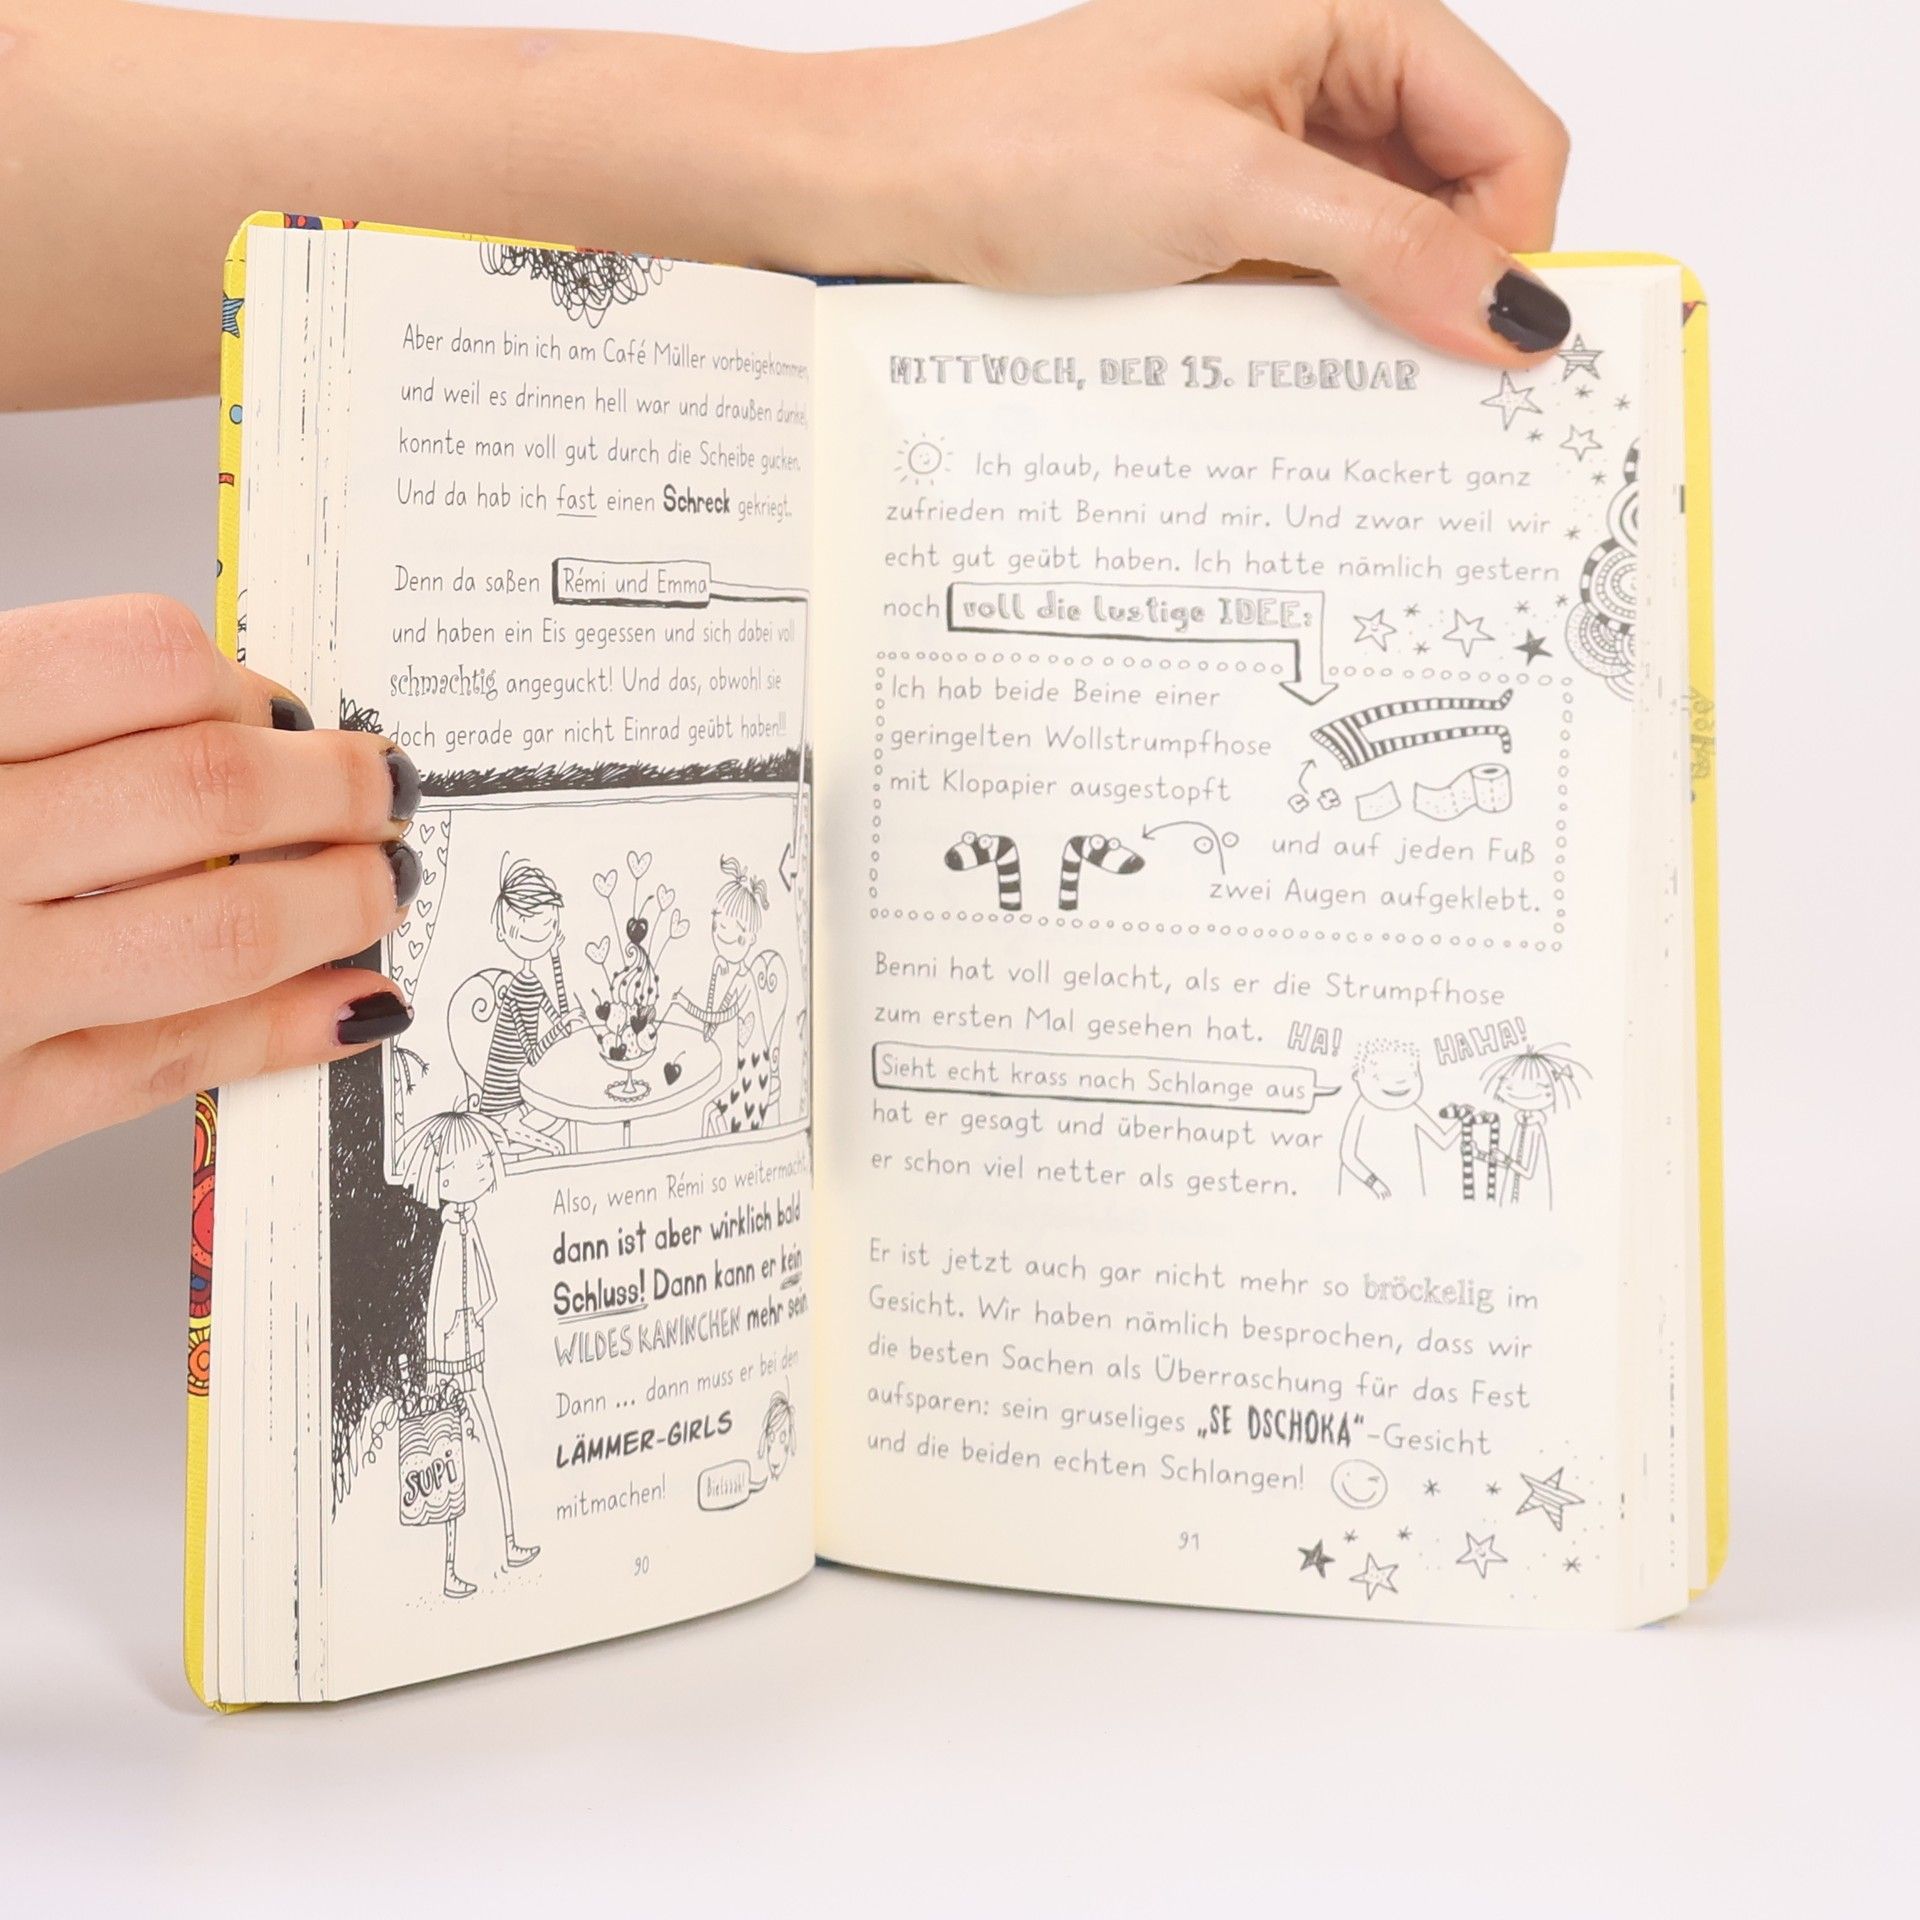 Aber dann bin ich am Café Müller vorbeigekommen,
und weil es drinnen hell war und draußen dunkel,
konnte man voll gut durch die Scheibe gucken.
Und da hab ich fast einen Schreck gekriegt.
Denn da saßen Rémi und Emma
und haben ein Eis gegessen und sich dabei voll
schmachtig angeguckt! Und das, obwohl sie
doch gerade gar nicht Einrad geübt haben!!!
Also, wenn Rémi so weitermacht,
dann ist aber wirklich bald
Schluss! Dann kann er kein
WILDES KANINCHEN mehr sein.
Dann ... dann muss er bei den
LÄMMER-GIRLS
mitmachen!
SUPi
90
MITTWOCH, DER 15. FEBRUAR
Ich glaub, heute war Frau Kackert ganz
zufrieden mit Benni und mir. Und zwar weil wir
echt gut geübt haben. Ich hatte nämlich gestern
noch voll die lustige IDEE:
Ich hab beide Beine einer
geringelten Wollstrumpfhose
mit Klopapier ausgestopft
und auf jeden Fuß
zwei Augen aufgeklebt.
Benni hat voll gelacht, als er die Strumpfhose
zum ersten Mal gesehen hat.
HA!
HAHA!
Sieht echt krass nach Schlange aus
hat er gesagt und überhaupt war
er schon viel netter als gestern.
Er ist jetzt auch gar nicht mehr so bröckelig im
Gesicht. Wir haben nämlich besprochen, dass wir
die besten Sachen als Überraschung für das Fest
aufsparen: sein gruseliges „SE DSCHOKA“-Gesicht
und die beiden echten Schlangen!
91